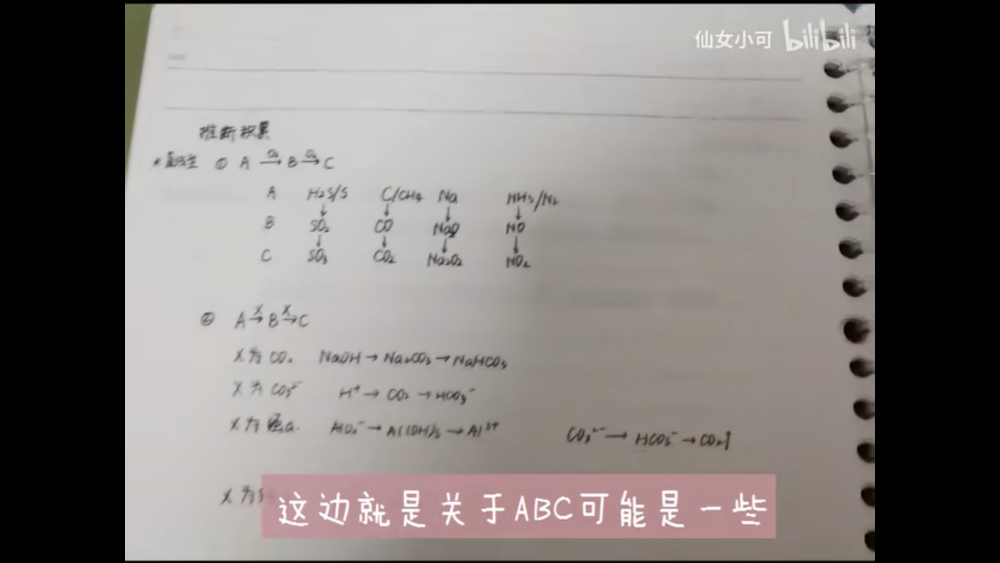 仙女小可 bilibili
推断积累
*直线型 ① A —O₂→ B —O₂→ C
A H₂S/S C/CH₄ Na NH₃/N₂
↓ ↓ ↓ ↓
B SO₂ CO Na₂O NO
↓ ↓ ↓ ↓
C SO₃ CO₂ Na₂O₂ NO₂
② A —X→ B —X→ C
X为CO₂ NaOH → Na₂CO₃ → NaHCO₃
X为CO₃²⁻ H⁺ → CO₂ → HCO₃⁻
X为强a. AlO₂⁻ → Al(OH)₃ → Al³⁺ CO₃²⁻ → HCO₃⁻ → CO₂↑
X为
这边就是关于ABC可能是一些